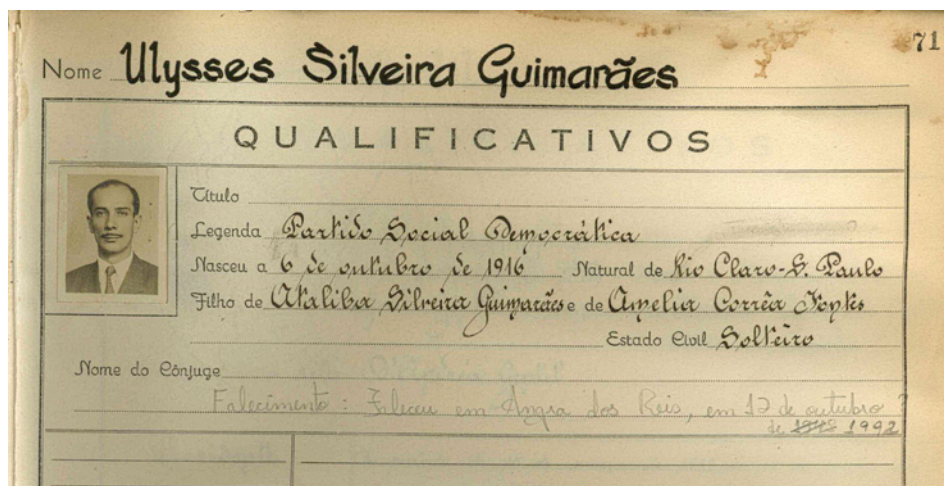 71
Nome Ulysses Silveira Guimarães
QUALIFICATIVOS
Título
Legenda Partido Social Democrática
Nasceu a 6 de outubro de 1916 Natural de Rio Claro-S. Paulo
Filho de Ataliba Silveira Guimarães e de Amelia Corrêa Fontes
Estado Civil Solteiro
Nome do Cônjuge
Falecimento : Faleceu em Angra dos Reis, em 12 de outubro ?
de 1992